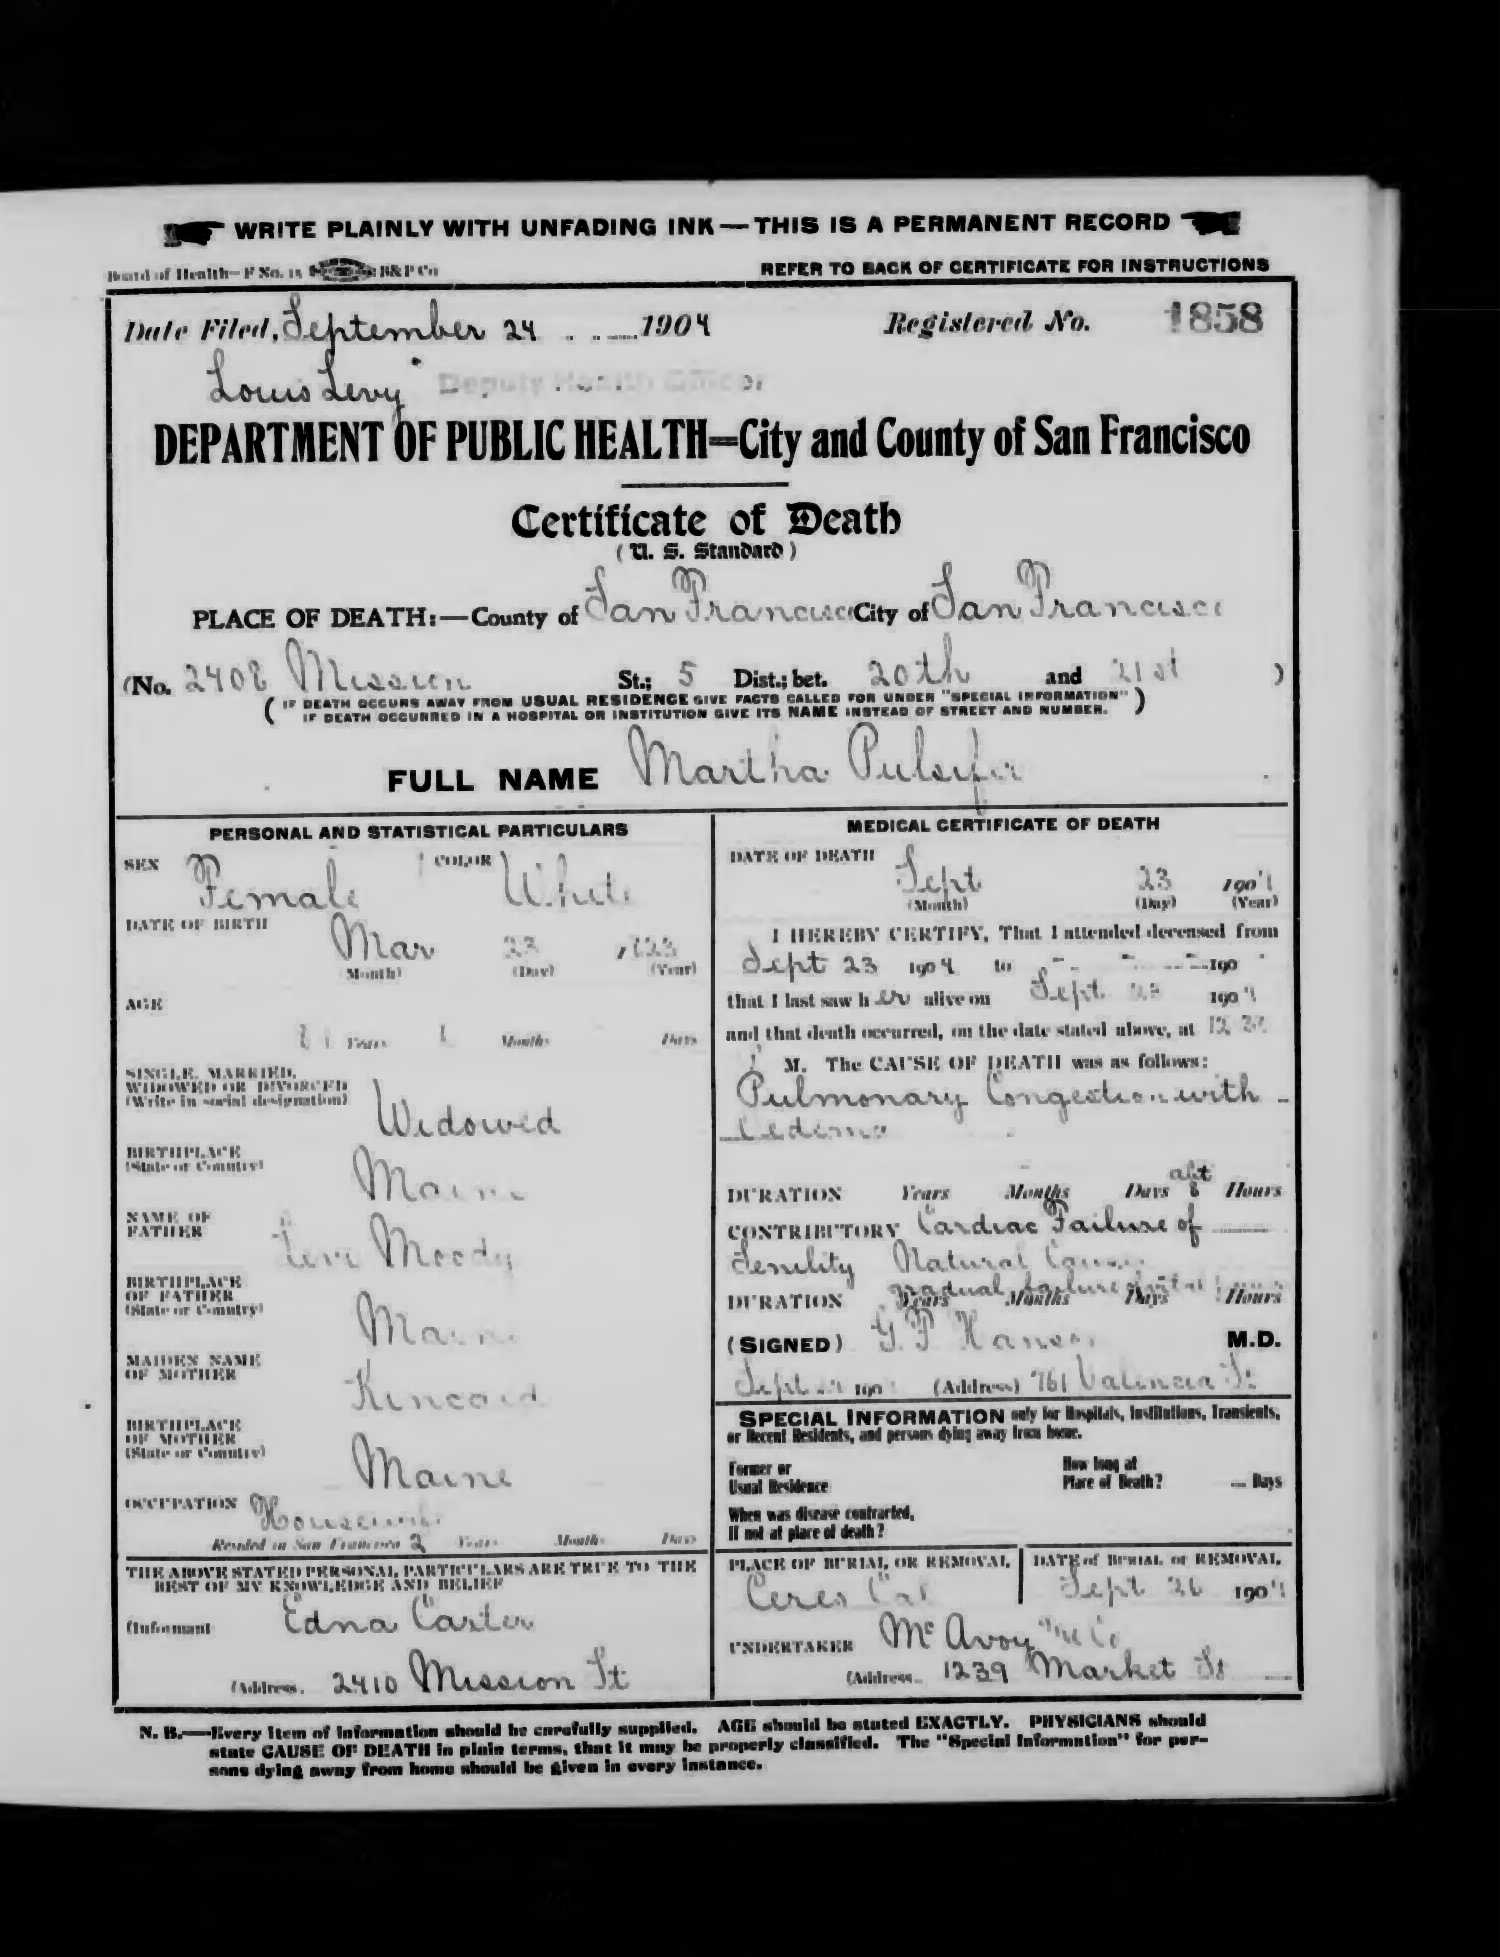 WRITE PLAINLY WITH UNFADING INK — THIS IS A PERMANENT RECORD
Board of Health—F No. 15 B&P Co
REFER TO BACK OF CERTIFICATE FOR INSTRUCTIONS
Date Filed, September 24 1904 Registered No. 1858
Louis Levy Deputy Health Officer
DEPARTMENT OF PUBLIC HEALTH=City and County of San Francisco
Certificate of Death
(U. S. Standard)
PLACE OF DEATH:—County of San Francisco City of San Francisco
(No. 2408 Mission St.; 5 Dist.; bet. 20th and 21st )
( IF DEATH OCCURS AWAY FROM USUAL RESIDENCE GIVE FACTS CALLED FOR UNDER "SPECIAL INFORMATION"
IF DEATH OCCURRED IN A HOSPITAL OR INSTITUTION GIVE ITS NAME INSTEAD OF STREET AND NUMBER. )
FULL NAME Martha Pulsifer
PERSONAL AND STATISTICAL PARTICULARS
SEX Female COLOR White
DATE OF BIRTH Mar 23
(Month) (Day) (Year)
AGE
81 Years Months Days
SINGLE, MARRIED,
WIDOWED OR DIVORCED
(Write in social designation) Widowed
BIRTHPLACE
(State or Country) Maine
NAME OF
FATHER Levi Moody
BIRTHPLACE
OF FATHER
(State or Country) Maine
MAIDEN NAME
OF MOTHER Kincaid
BIRTHPLACE
OF MOTHER
(State or Country) Maine
OCCUPATION Housewife
Resided in San Francisco 2 Years Months Days
THE ABOVE STATED PERSONAL PARTICULARS ARE TRUE TO THE
BEST OF MY KNOWLEDGE AND BELIEF
(Informant Edna Carter
(Address. 2410 Mission St
MEDICAL CERTIFICATE OF DEATH
DATE OF DEATH Sept 23 1904
(Month) (Day) (Year)
I HEREBY CERTIFY, That I attended deceased from
Sept 23 1904 to 190
that I last saw her alive on Sept 23 1904
and that death occurred, on the date stated above, at
M. The CAUSE OF DEATH was as follows:
Pulmonary Congestion with
Oedema
abt
DURATION Years Months Days 8 Hours
CONTRIBUTORY Cardiac Failure of
Senility Natural Cause
gradual failure of
DURATION Years Months Days Hours
(SIGNED) M.D.
Sept 190 (Address) 761 Valencia St
SPECIAL INFORMATION only for Hospitals, Institutions, Transients,
or Recent Residents, and persons dying away from home.
Former or
Usual Residence
How long at
Place of Death? Days
When was disease contracted,
If not at place of death?
PLACE OF BURIAL OR REMOVAL
Ceres Cal
DATE of BURIAL or REMOVAL
Sept 26 1904
UNDERTAKER McAvoy & Co
(Address. 1239 Market St
N. B.—Every item of information should be carefully supplied. AGE should be stated EXACTLY. PHYSICIANS should
state CAUSE OF DEATH in plain terms, that it may be properly classified. The "Special Information" for per-
sons dying away from home should be given in every instance.